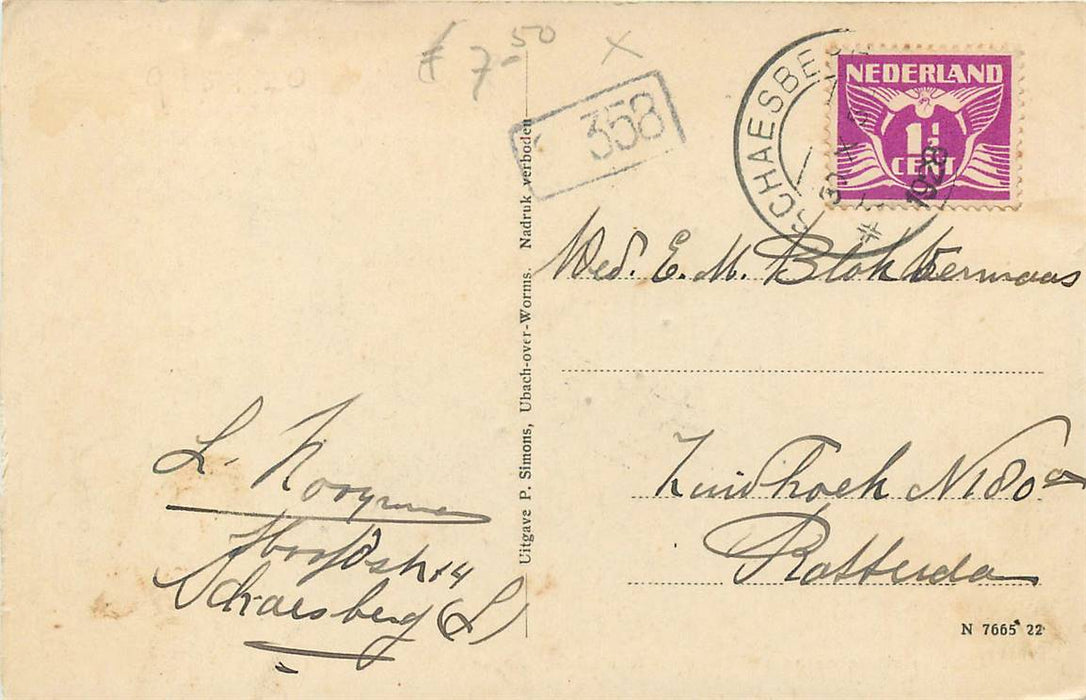 € 7-50 X
358
SCHAESBERG
1928
NEDERLAND
1½
CENT
Wed. E. M. Blok Vermaas
Zuidhoek N 180a
Rotterdam
L. Kooyman
Hoofdstr 14
Schaesberg (L)
Uitgave P. Simons, Ubach-over-Worms. Nadruk verboden
N 7665 22